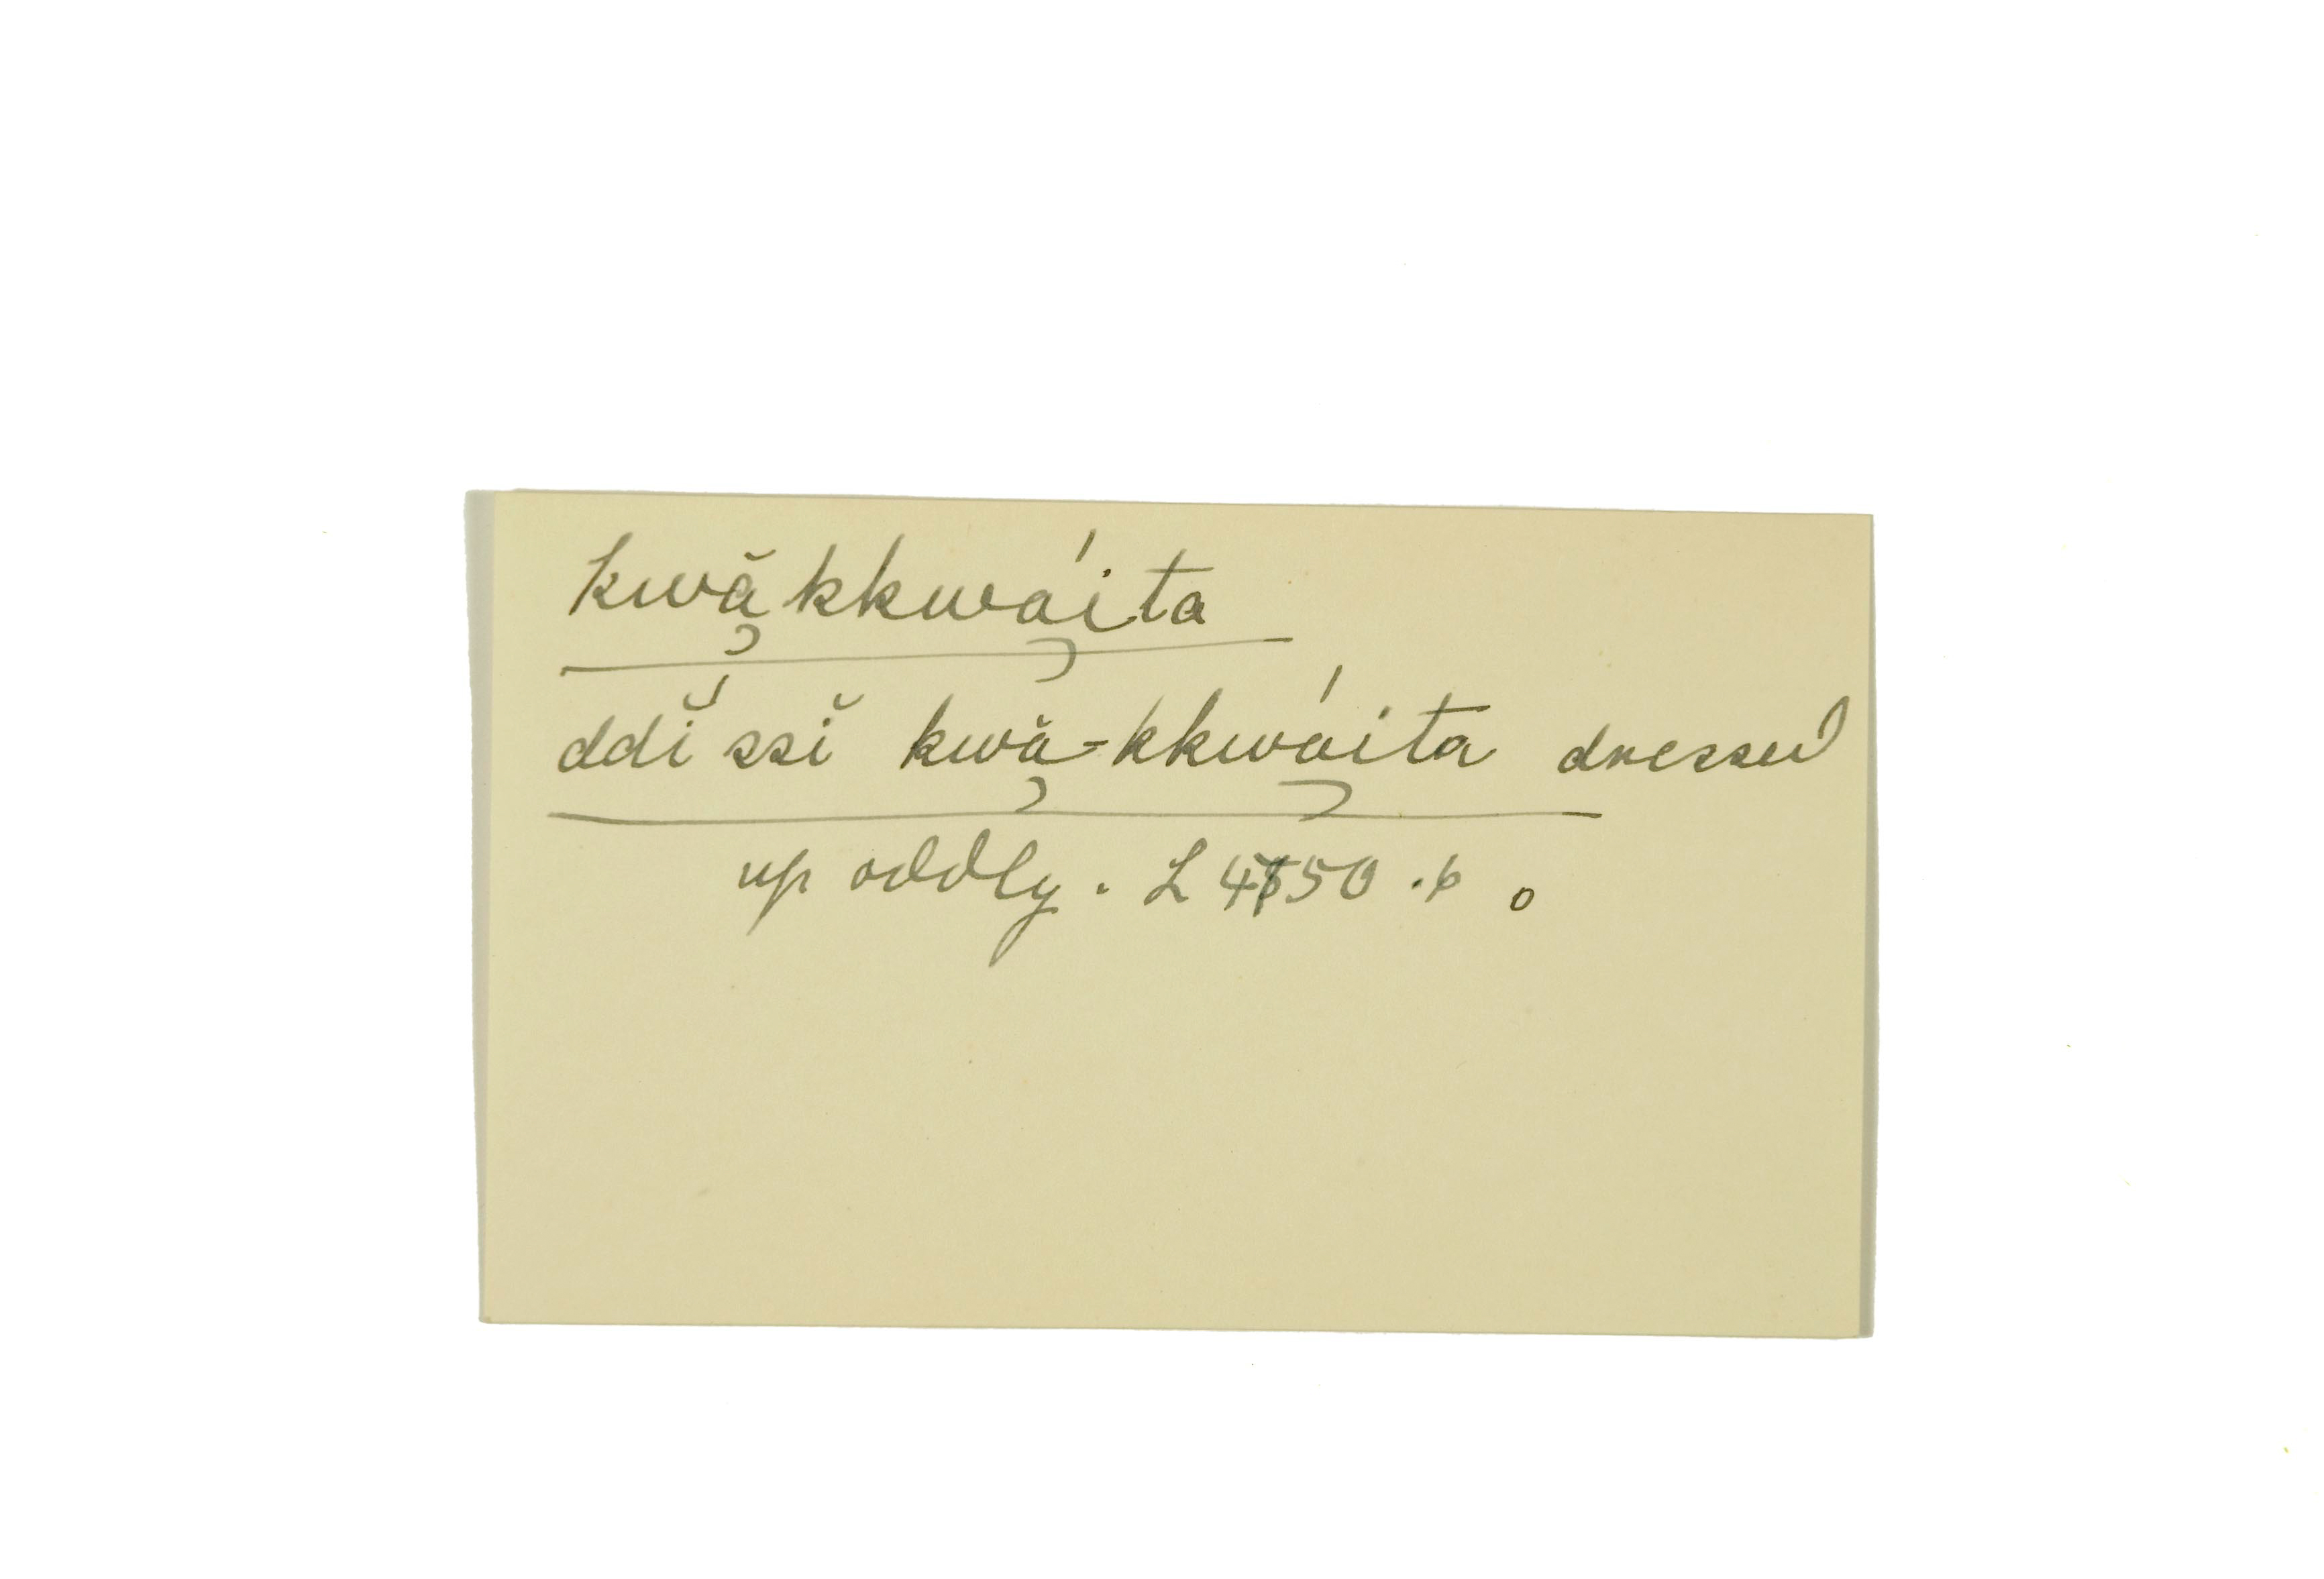 kwă̜kkwá̜ita
ddĭ́ssĭ kwă̜-kkwá̜ita dressed
up oddly. L 4150.6 o